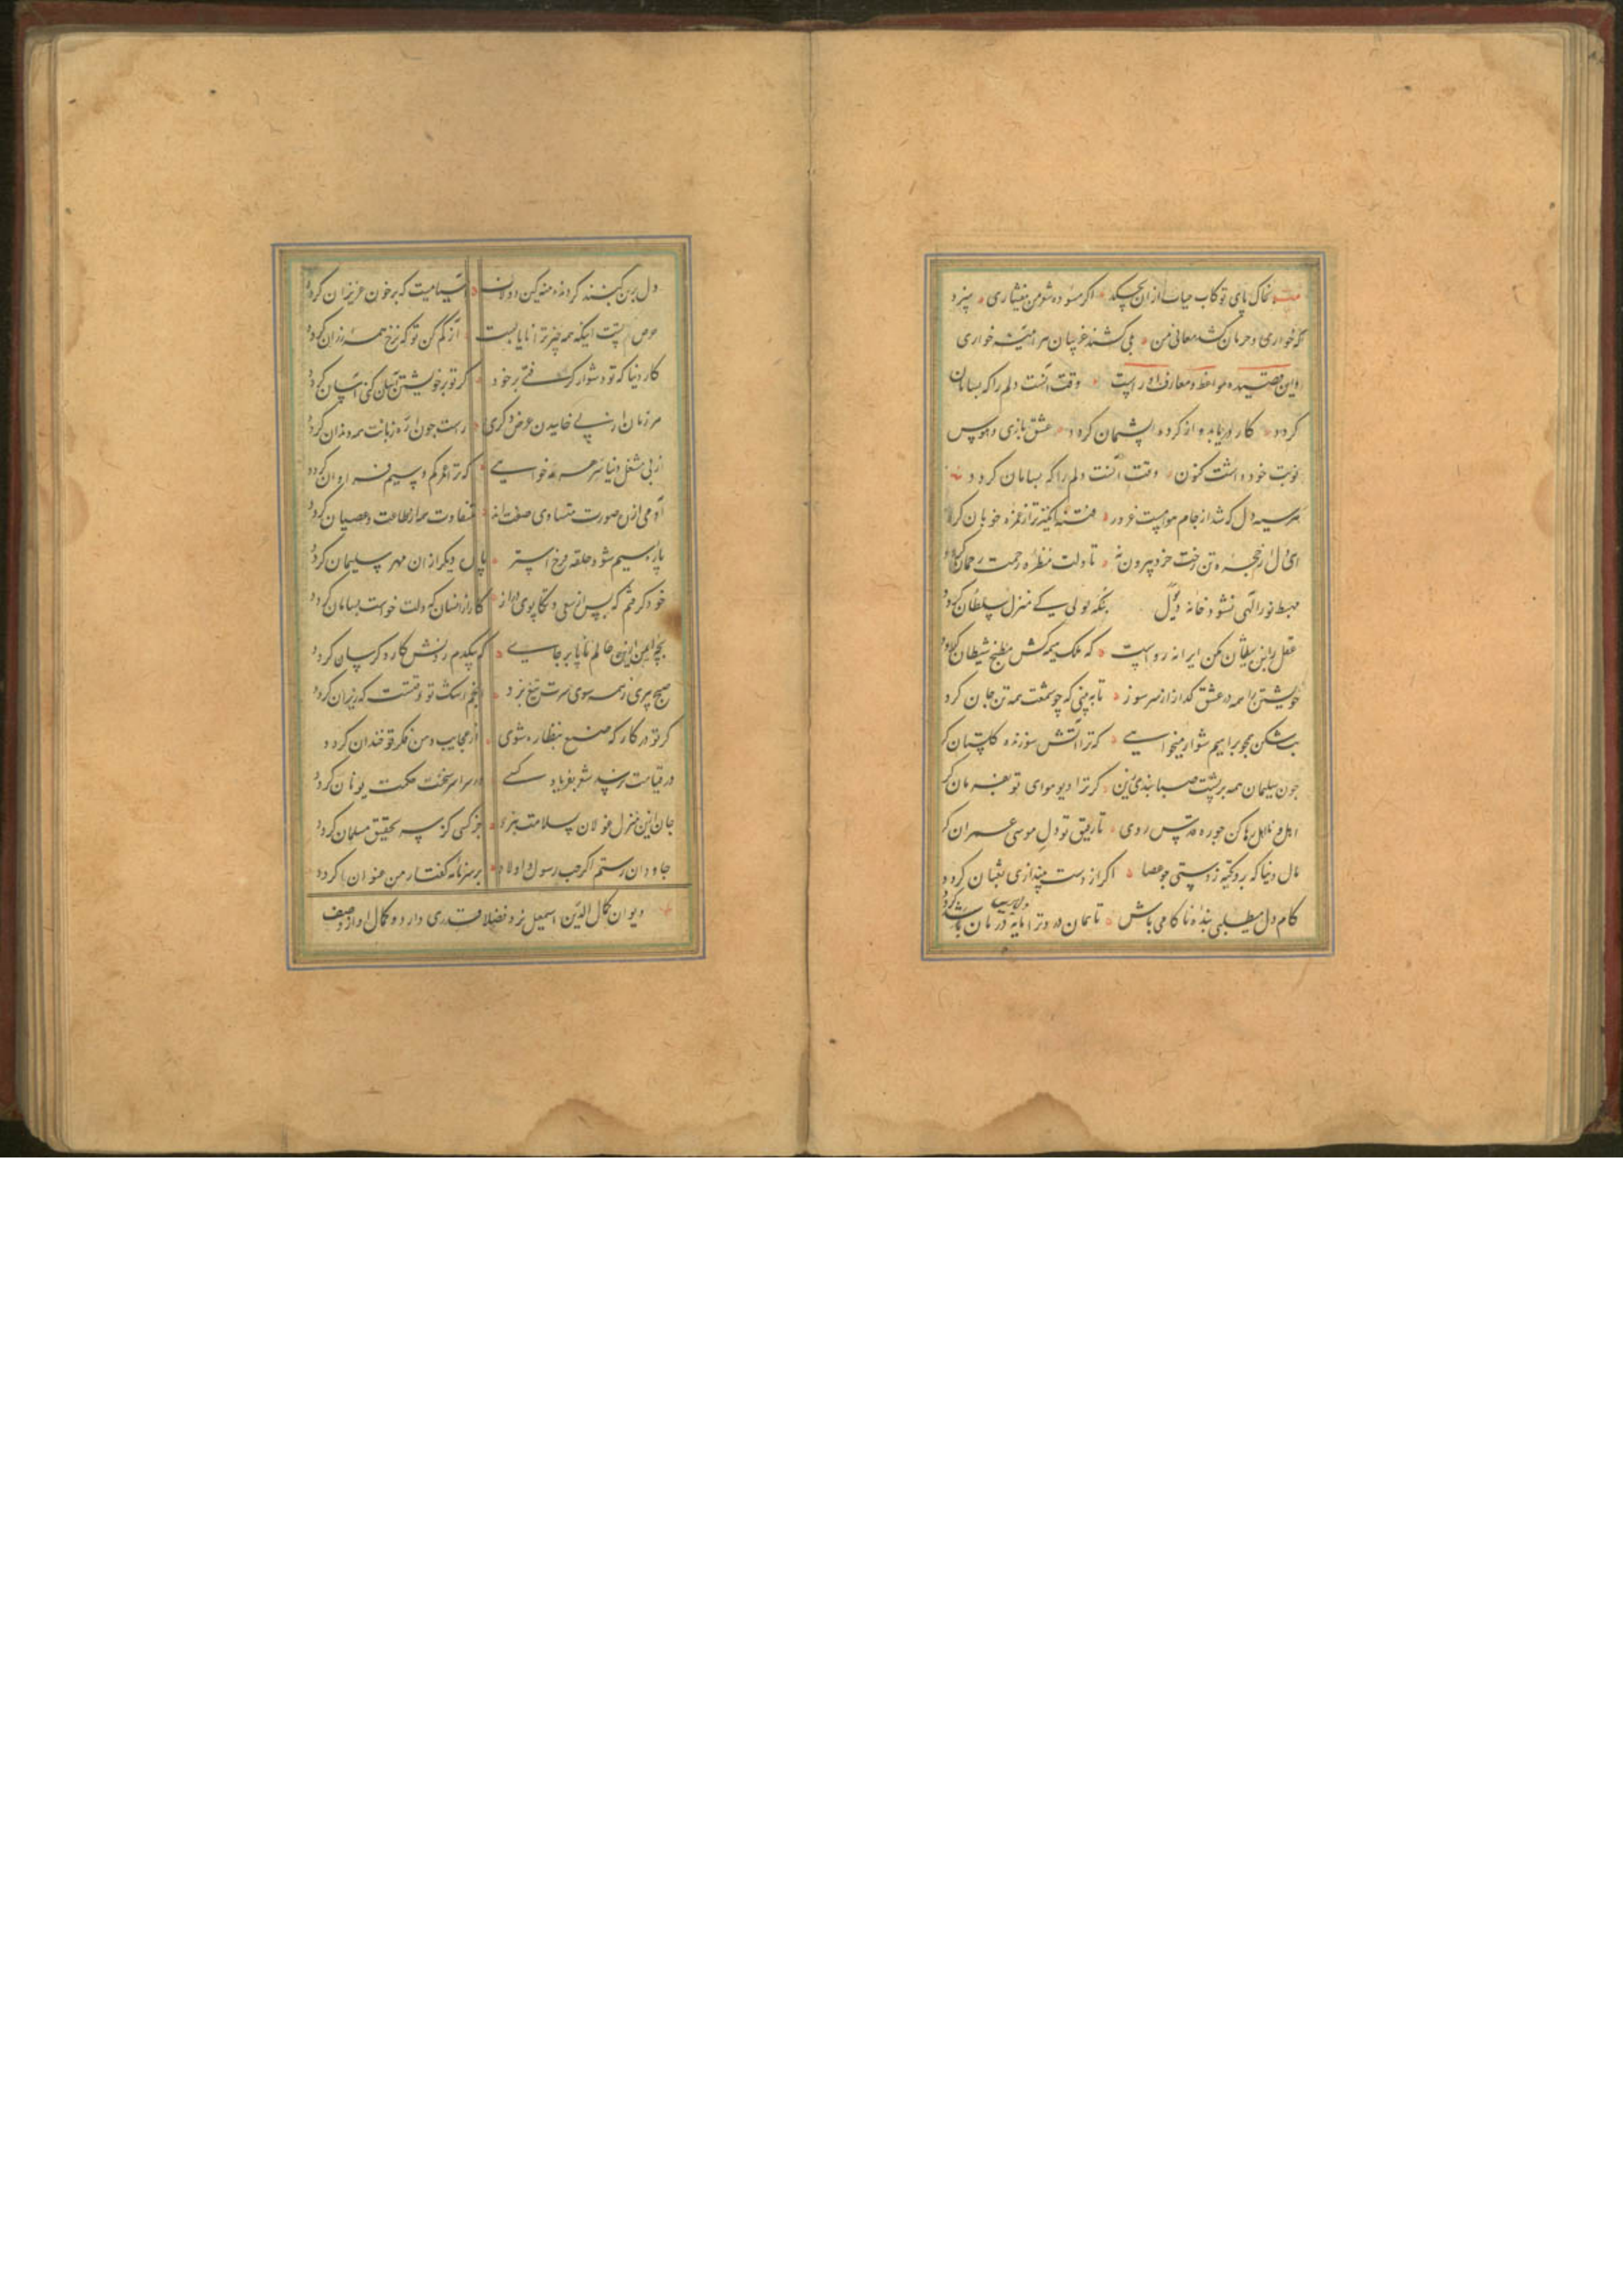 بخاک پای تو کاب حیات ازان بچکد اکر مسوده شعر من بیفشاری سزد
که خواری و حرمان کشد معانی من بلی کشند غریبان هر آینه خواری
واین قصیده مواعظ و معارف اوراست وقت آنست دلم را که بسامان
کردد کار دریابد و از کرده پشیمان کردد عشق بازی و هوس
نوبت خود داشت کنون وقت آنست دلم را که بسامان کردد
هر سیه دل که شد از جام هوا مست غرور فتنه انکیزتر از غمزه خوبان کردد
ای دل از حجره تن رخت خرد بیرون نه تا دلت منظره رحمت رحمان کردد
مهبط نور الهی نشود خانه دیو بنکه لولی کی منزل سلطان کردد
عقل را بنده شیطان مکن ایرا نه رواست که ملک هیمه کش مطبخ شیطان کردد
خویشتن را همه در عشق کداز از سر سوز تا ببینی که چو شمعت همه تن جان کردد
بت شکن همچو براهیم شو ار میخواهی که ترا آتش سوزنده کلستان کردد
چون سلیمان همه بر پشت صبا بندی زین کر ترا دیو هوای تو بفرمان کردد
اهل و نااهل رها کن چو ره قدس روی تا رفیق تو دل موسی عمران کردد
مال دنیا که برو تکیه زدستی چو عصا اکر از دست بیندازی ثعبان کردد
کام دل میطلبی بنده ناکامی باش تا همان درد ترا مایه درمان کردد
دل برین کنبد کردنده منه کین دولاب آسیاییست که بر خون عزیزان کردد
حرص تست اینکه همه چیز ترا نایابست آز کم کن تو که نرخ همه ارزان کردد
کار دنیا که تو دشوار کرفتی بر خود کر تو بر خویشتن آسان کنی آسان کردد
هر زمان از پی خاییدن عرض دکری راست چون اره زبانت همه دندان کردد
از پی مشغله دنیا ز هنر میخواهی که ترا غم کم و سیم فراوان کردد
آدمی از ره صورت متساوی صفت اند متفاوت همه از طاعت و عصیان کردد
پاره سیم شود حلقه فرج استر پاره دیکر از ان مهر سلیمان کردد
خود کرفتم که پس از سعی و تکاپوی دراز کارزانسان که دلت خواست بسامان کردد
بچه ایمن ازین عالم ناپا برجای که بیکدم ردنش کار دکرسان کردد
صبح پیری ز همه سوی سرت تیغ بزد انجم اشک تو وقتست که ریزان کردد
کر تو در کارکه صنع بنظاره شوی از عجایب دهن فکر تو خندان کردد
در قیامت نرسد شعر بفریاد کسی ور سراسر سخنت حکمت یونان کردد
جان ازین منزل غولان بسلامت نبرد جز کسی کز سر تحقیق مسلمان کردد
جاودان رستم اکر حب رسول و اولاد بر سر نامه کفتار من عنوان کردد
دیوان کمال الدین اسمعیل نزد فضلا قدری دارد و کمال او از وصف